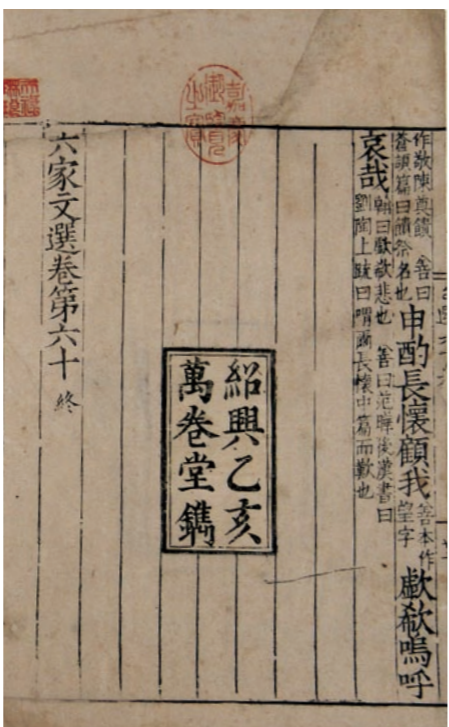 作敬陳奠饋 善曰
蒼頡篇曰饋祭名也
申酌長懷顧我
善本作
望字
歔欷嗚呼
哀哉
翰曰歔欷悲也 善曰范曄後漢書曰
劉陶上疏曰喟爾長懷中篇而歎也
嘉慶
御覽
之寶
紹興乙亥
萬卷堂鐫
六家文選卷第六十 終